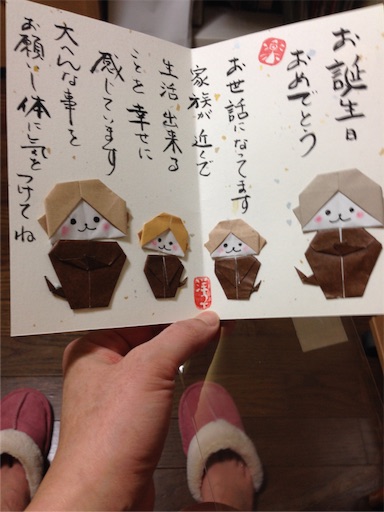 お誕生日
おめでとう
お世話になってます
家族が近くで
生活出来る
ことを幸せに
感じています
大へんな事を
お願いし体に気をつけてね